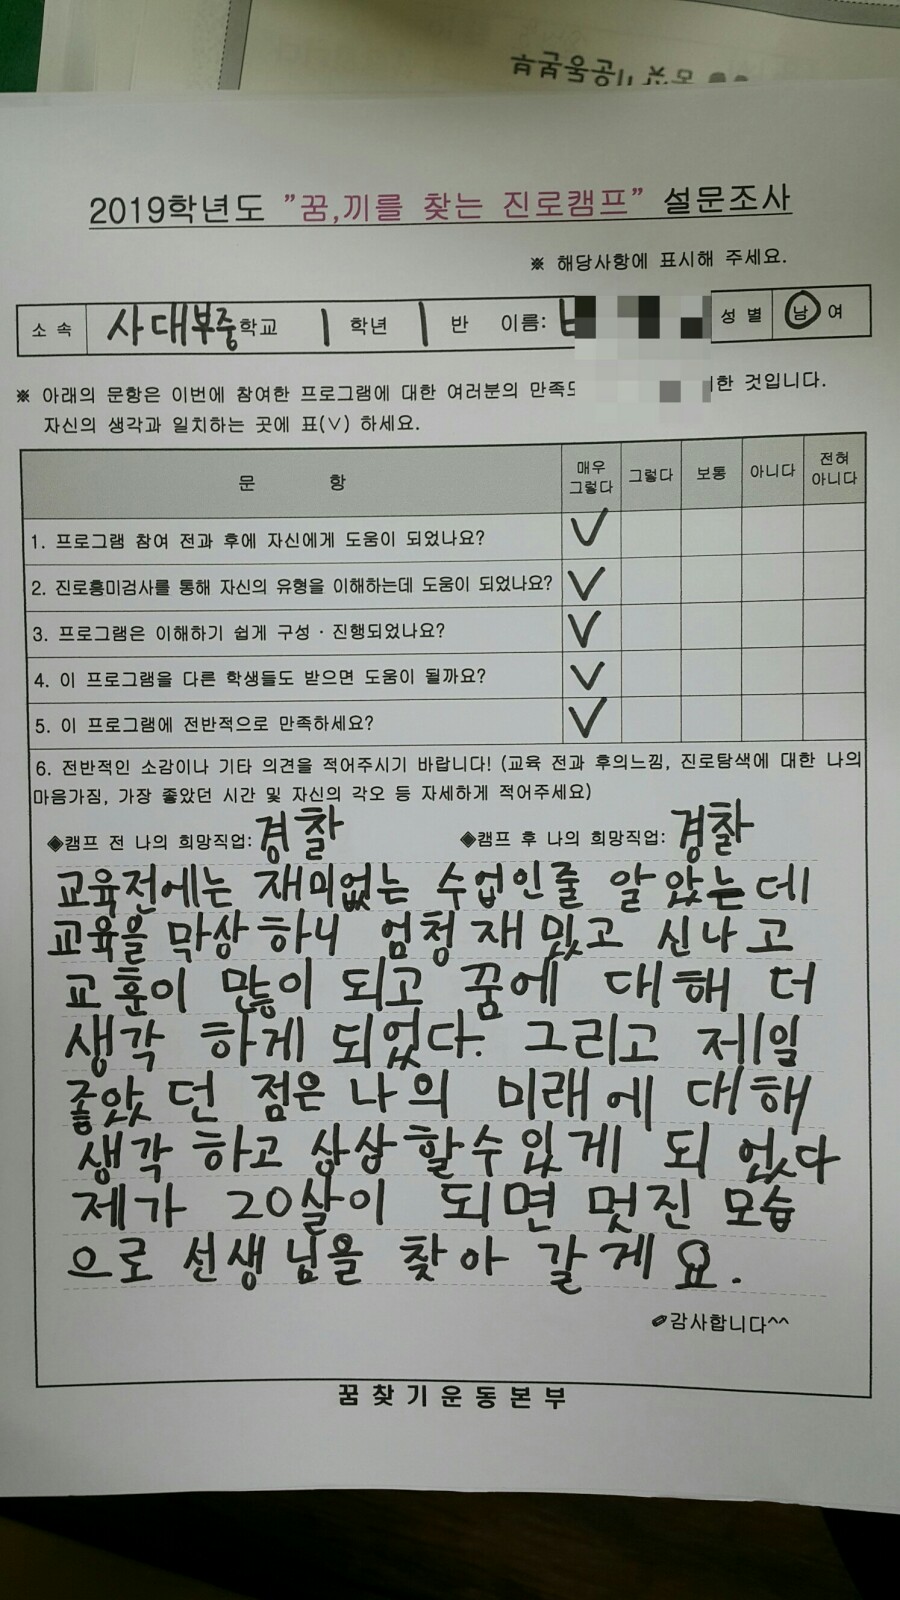 2019학년도 "꿈,끼를 찾는 진로캠프" 설문조사
※ 해당사항에 표시해 주세요.
소 속 사대부중학교 1 학년 1 반 이름: 성 별 남 여
※ 아래의 문항은 이번에 참여한 프로그램에 대한 여러분의 만족도 한 것입니다.
자신의 생각과 일치하는 곳에 표(∨) 하세요.
문 항 매우 그렇다 그렇다 보통 아니다 전혀 아니다
1. 프로그램 참여 전과 후에 자신에게 도움이 되었나요? ∨
2. 진로흥미검사를 통해 자신의 유형을 이해하는데 도움이 되었나요? ∨
3. 프로그램은 이해하기 쉽게 구성 · 진행되었나요? ∨
4. 이 프로그램을 다른 학생들도 받으면 도움이 될까요? ∨
5. 이 프로그램에 전반적으로 만족하세요? ∨
6. 전반적인 소감이나 기타 의견을 적어주시기 바랍니다! (교육 전과 후의느낌, 진로탐색에 대한 나의
마음가짐, 가장 좋았던 시간 및 자신의 각오 등 자세하게 적어주세요)
◈캠프 전 나의 희망직업: 경찰 ◈캠프 후 나의 희망직업: 경찰
교육전에는 재미없는 수업인줄 알았는데
교육을 막상하니 엄청 재밌고 신나고
교훈이 많이 되고 꿈에 대해 더
생각 하게 되었다. 그리고 제일
좋았던 점은 나의 미래에 대해
생각 하고 상상 할수있게 되었다
제가 20살이 되면 멋진 모습
으로 선생님을 찾아 갈게요.
감사합니다^^
꿈찾기운동본부